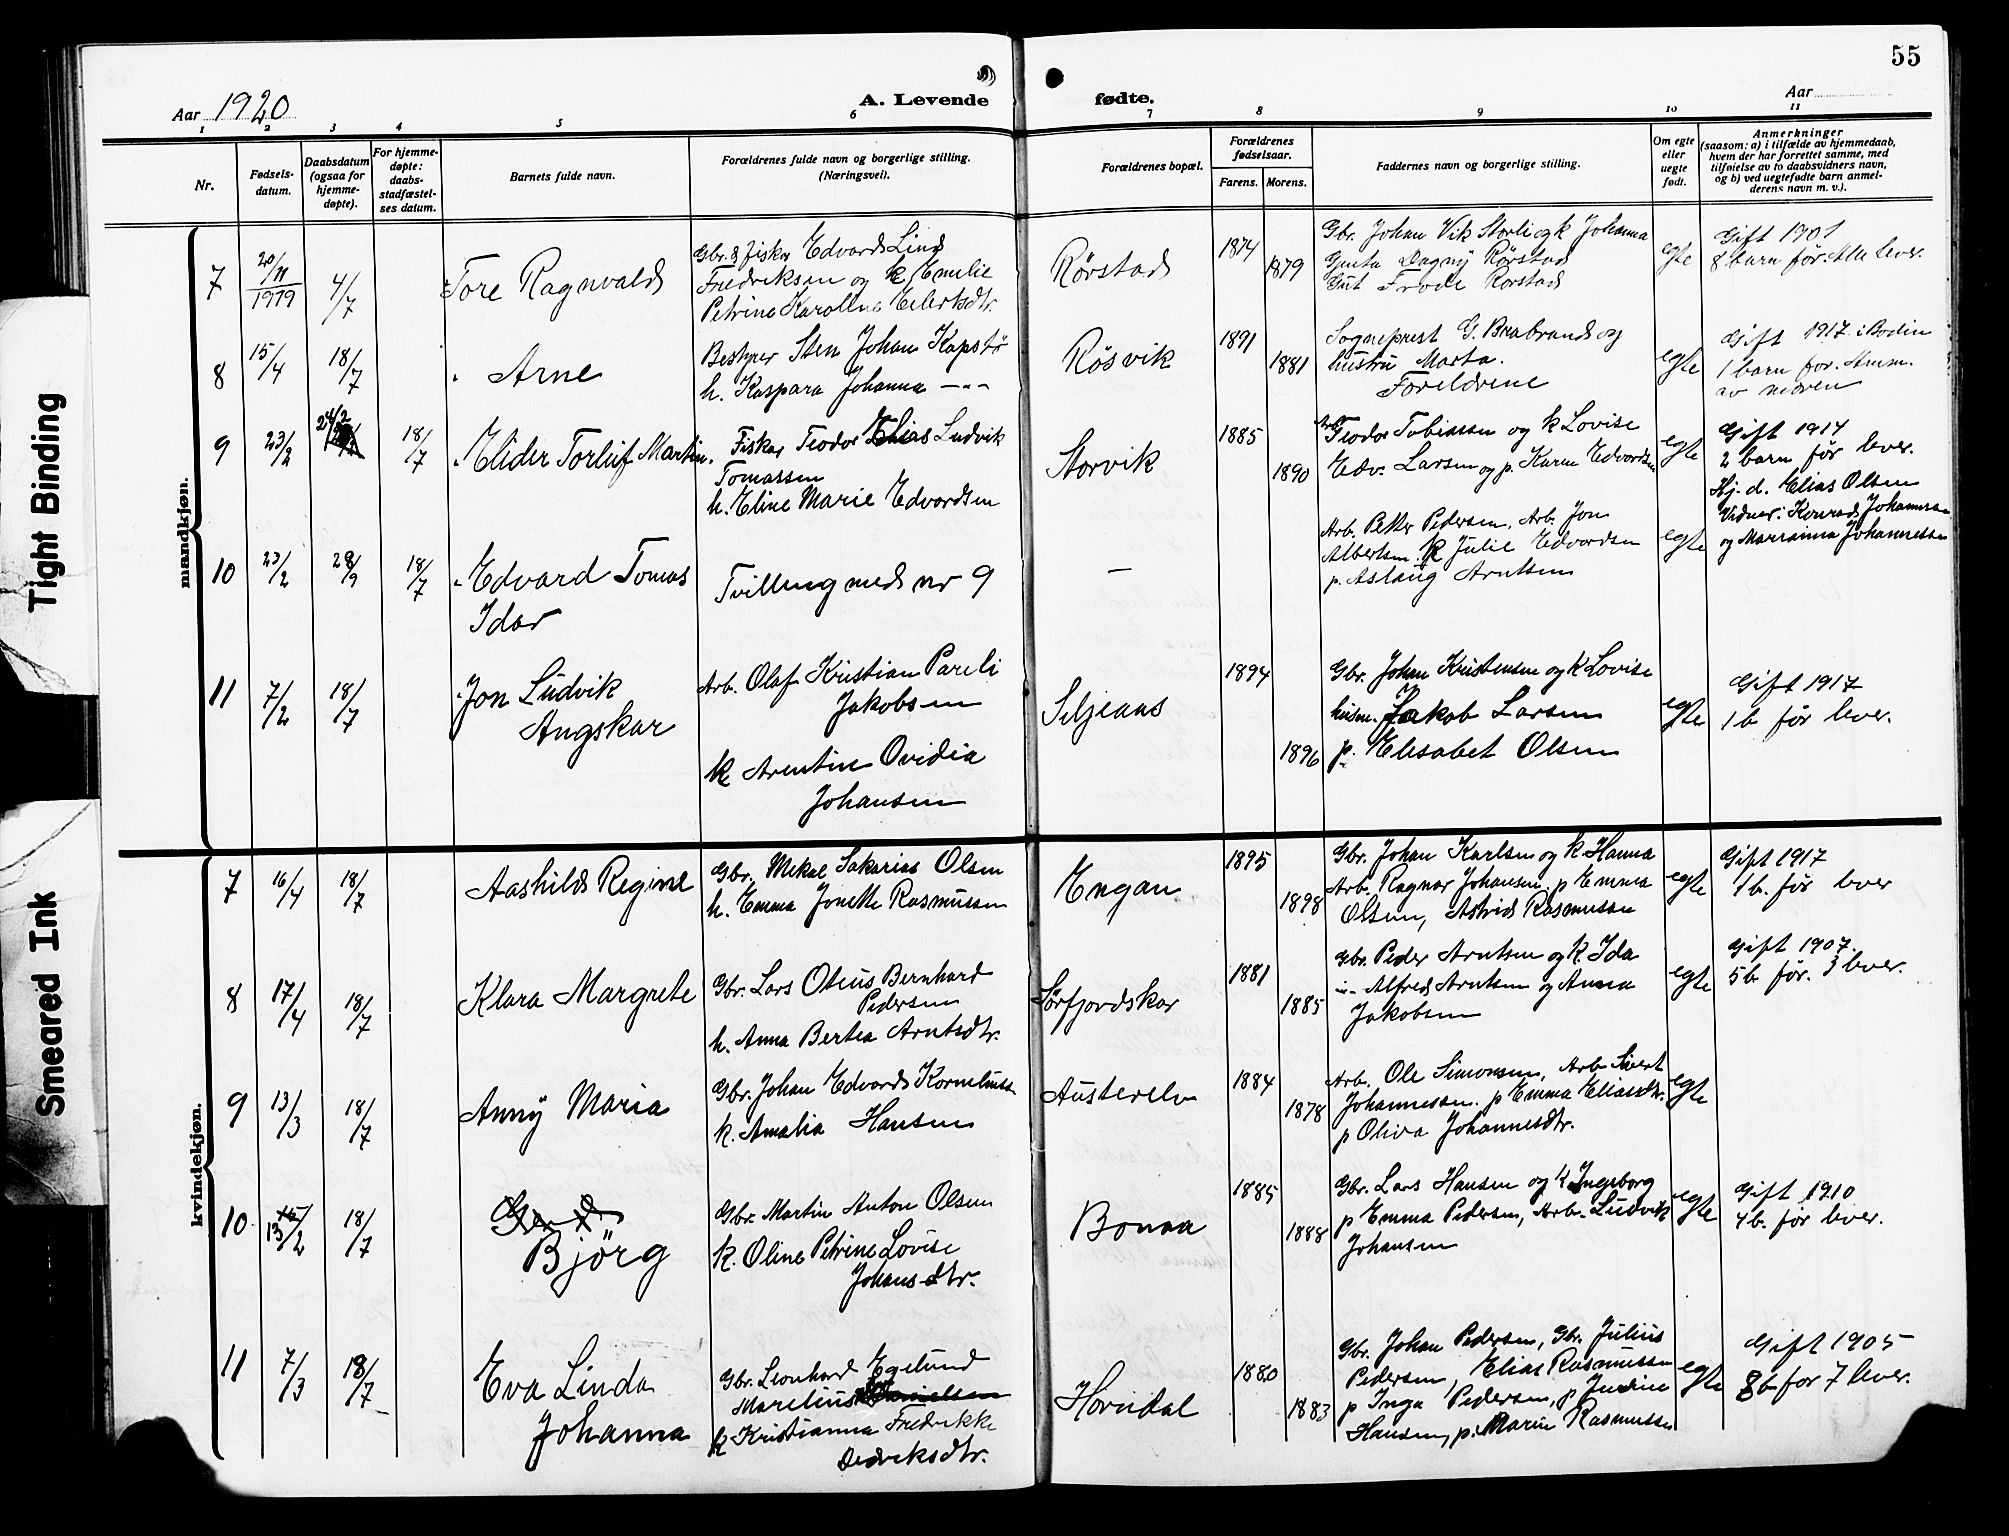 55
Aar 1920
A. Levende fødte.
Aar
1 2 3 4 5 6 7 8 9 10 11
Nr.
Fødsels-
datum.
Daabsdatum
(ogsaa for
hjemme-
døpte).
For hjemme-
døpte:
daabs-
stadfæstel-
ses datum.
Barnets fulde navn.
Forældrenes fulde navn og borgerlige stilling.
(Næringsvei).
Forældrenes bopæl.
Forældrenes
fødselsaar.
Farens. Morens.
Faddernes navn og borgerlige stilling.
Om egte
eller
uegte
født.
Anmerkninger
(saasom: a) i tilfælde av hjemmedaab,
hvem der har forrettet samme, med
tilføielse av to daabsvidners navn,
og b) ved uegtefødte barn anmel-
derens navn m. v.).
Tight Binding
Smeared Ink
mandkjøn.
7
20/11
1919
4/7
Tore Ragnvald
Gbr. & fisker Edvard Lind
Fredriksen og k. Emelie
Petrine Karoline Eilertsdtr.
Rørstad
1874
1879
Gbr. Johan Vik Storli og k Johanna
Gjenta Dagny Rørstad
Gut Frode Rørstad
egte
Gift 1901
8 barn før. Alle lever.
8
15/4
18/7
Arne
Bestyrer Sten Johan Kapstø
h. Kaspara Johanna — " —
Røsvik
1891
1881
Sogneprest G. Brabrand og
hustru Marta.
Foreldrene
egte
Gift 1917 i Bodin
1 barn før. Anm.
av moren
9
23/2
24/2
18/7
Elider Torleif Martin.
Fisker Teodor Elias Ludvik
Tomassen
h. Eline Marie Edvardsen
Storvik
1885
1890
Teodor Tobiassen og k Lovise
Edv. Larsen og p. Karen Edvardsen
egte
Gift 1914
2 barn før lever.
Hj. d. Elias Olsen
Vidner: Konrad Johannesen
og Marianna Johannessen
10
23/2
18/7
Edvard Tomas
Idar
Tvilling med nr 9
—
Arb. Petter Pedersen, Arb. Jon
Albertsen. k Julie Edvardsen
p. Aslaug Arntsen
egte
11
7/2
18/7
Jon Ludvik
Angskar
Arb. Olaf Kristian Pareli
Jakobsen
k Arentine Ovidia
Johansen
Seljeaas
1894
1896
Gbr. Johan Kristensen og k Lovise
husm. Jakob Larsen
p. Elisabet Olsen
egte
Gift 1917
1 b. før lever.
kvindekjøn.
7
16/4
18/7
Aashild Regine
Gbr. Mekal Sakarias Olsen
h. Emma Jonette Rasmussen
Engan
1895
1898
Gbr. Johan Karlsen og k. Hanna
Arb. Ragnar Johansen. p Emma
Olsen, Astrid Rasmussen
egte
Gift 1917
1 b. før lever
8
17/4
18/7
Klara Margrete
Gbr. Lars Oteus Bernhard
Pedersen
h. Anna Bertea Arntsdtr.
Sørfjordskar
1881
1885
Gbr. Peder Arntsen og k. Ida
— " — Alfred Arntsen og Anna
Jakobsen
egte
Gift 1907.
5 b. før. 3 lever.
9
13/3
18/7
Anny Maria
Gbr. Johan Edvard Korneliuss
k. Amalia Hansen
Austerelv
1884
1878
Arb. Ole Simonsen, Arb. Sivert
Johannessen. p Emma Eliasdtr.
p Oliva Johannesdtr.
egte
10
13/2
18/7
Bjørg
Gbr. Martin Anton Olsen
k. Oline Petrine Lovise
Johansdtr.
Bonaa
1885
1888
Gbr. Lars Hansen og k Ingeborg
p Emma Pedersen, Arb. Ludvik
Johansen
egte
Gift 1910
4 b. før lever.
11
7/3
18/7
Eva Linda
Johanna
Gbr. Leonhard Egelund
Marelius Danielsen
k Kristianna Fredrikke
Dedriksdtr.
Hovudal
1880
1883
Gbr. Johan Pedersen, Gbr. Julius
Pedersen, Elias Rasmussen
p Inga Pedersen, p Judine
Hansen, p. Marie Rasmussen
egte
Gift 1905
8 b før 7 lever.